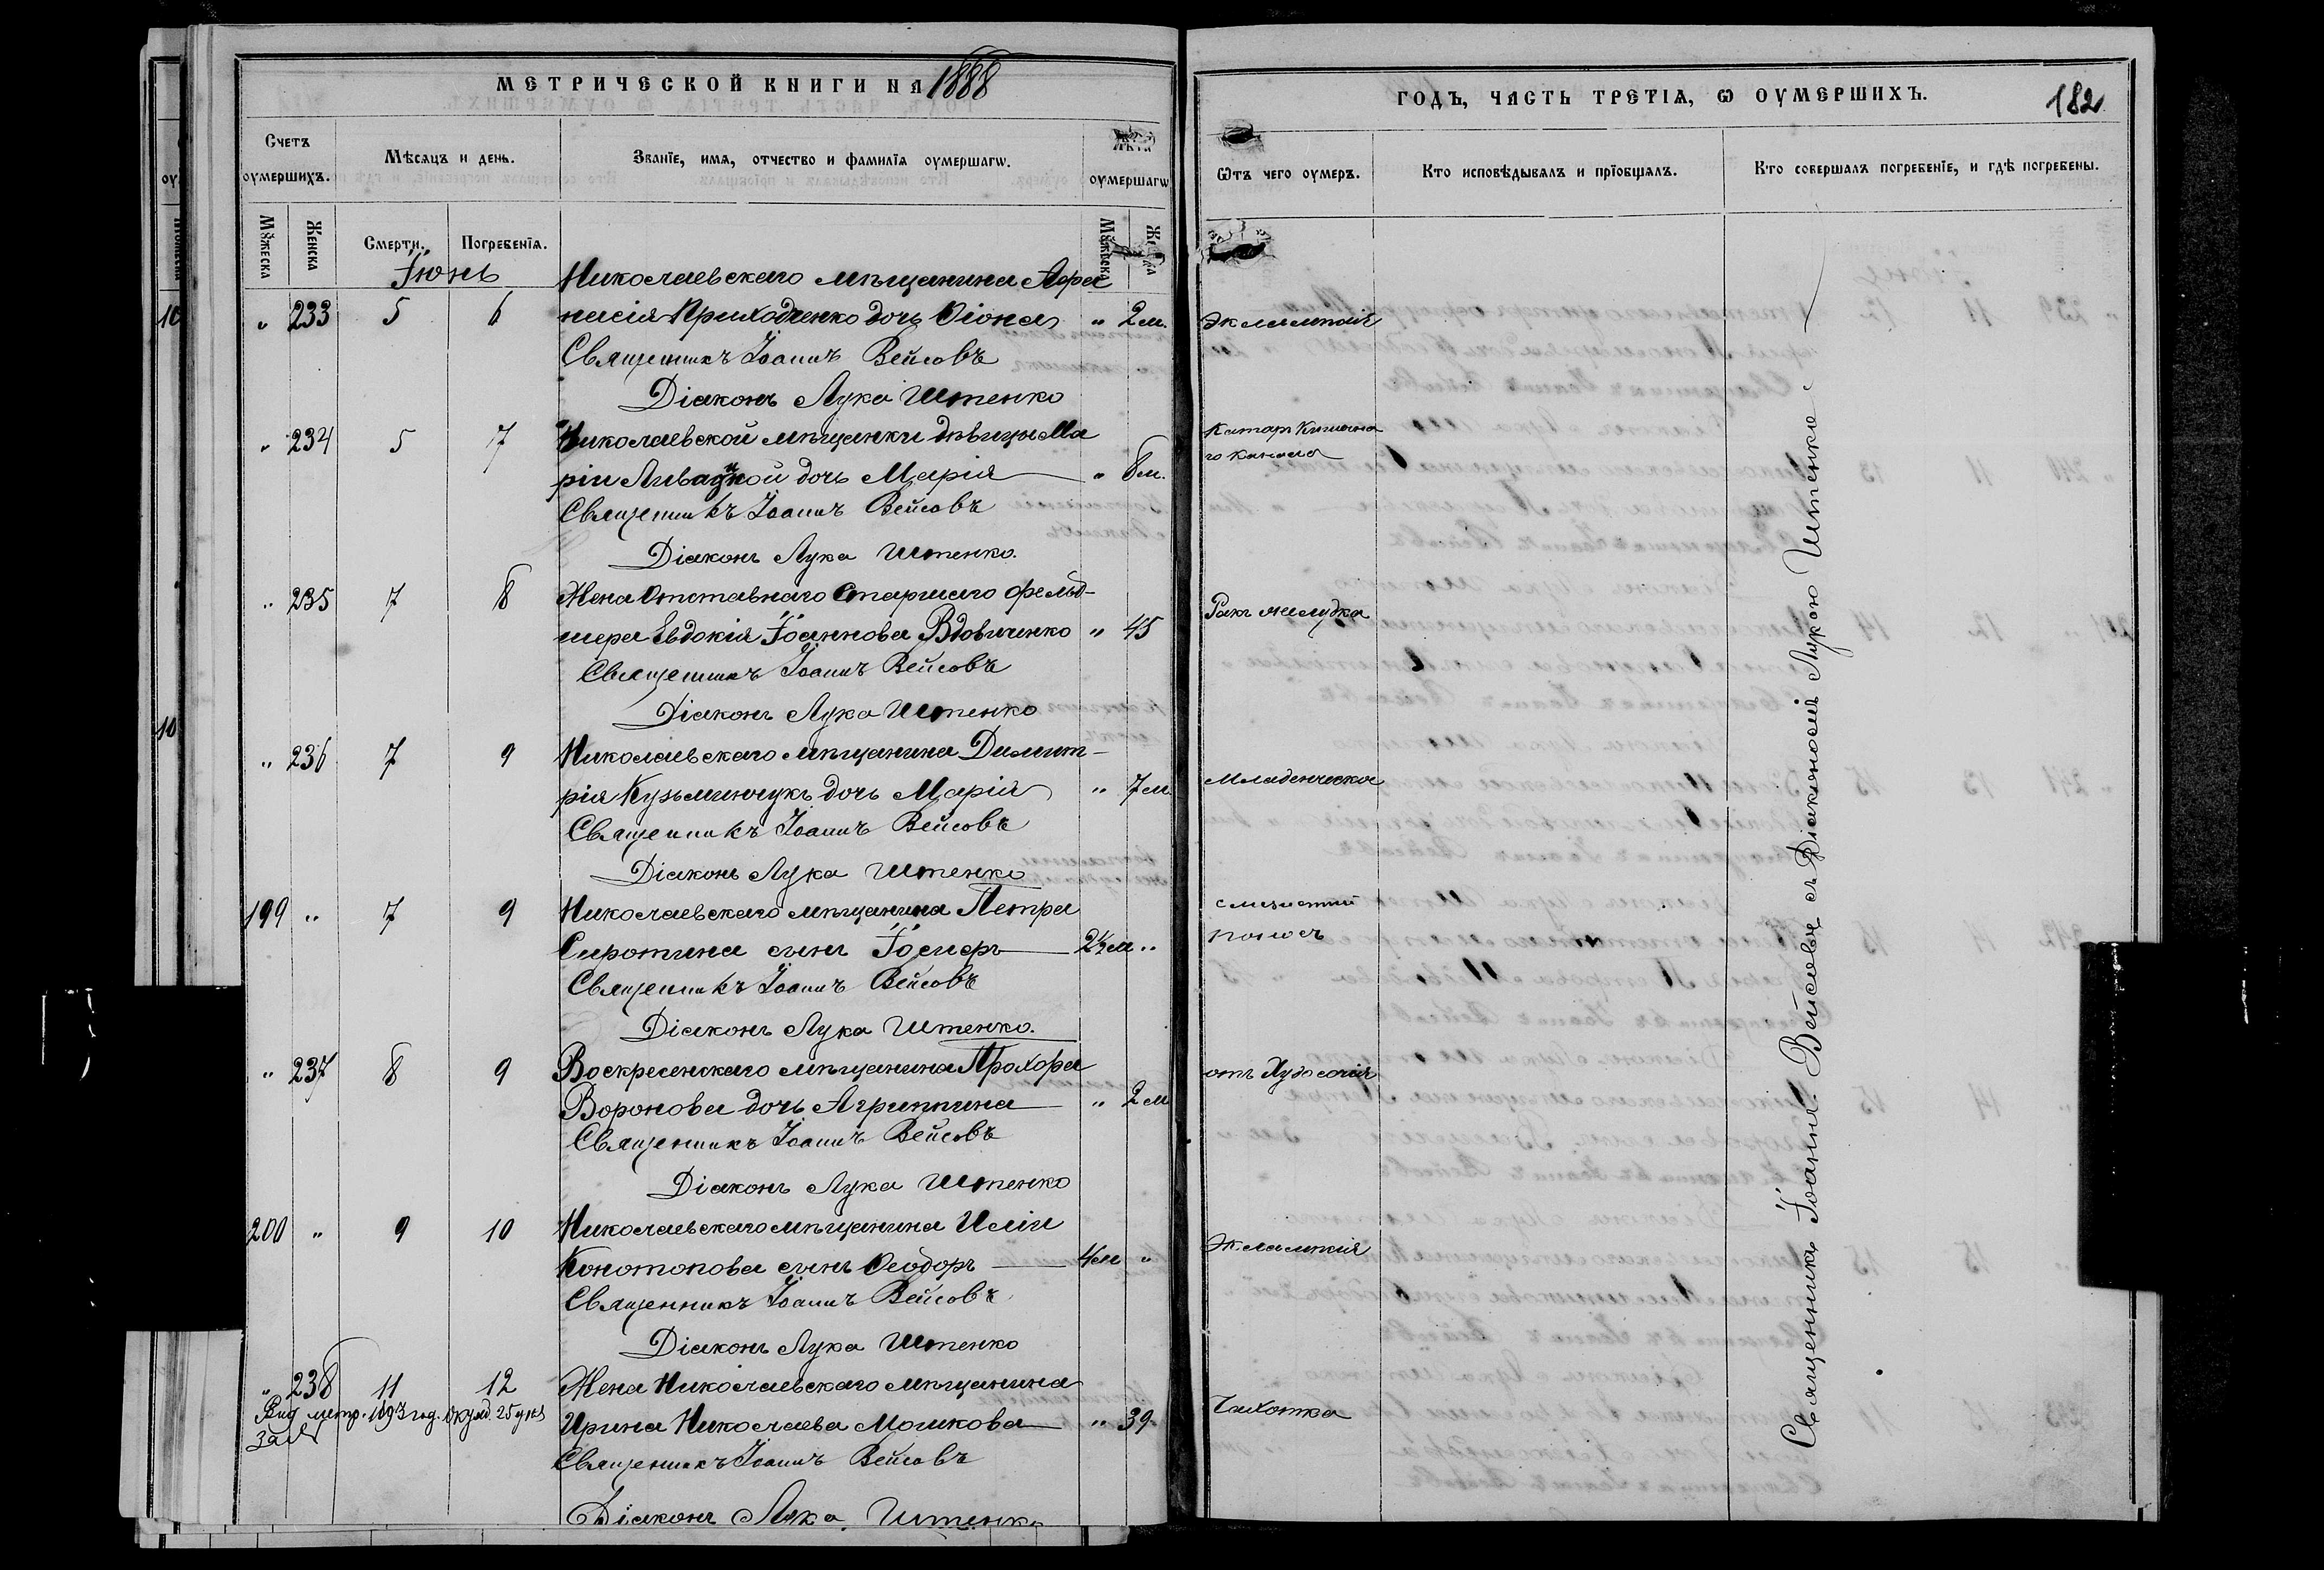 МЕТРИЧЕСКОЙ КНИГИ НА 1888
Счетъ оумершихъ.
Мѣсяцъ и день.
Званїе, имя, отчество и фамилїя оумершагѡ.
Лѣта оумершагѡ
Мꙋжеска
Женска
Смерти.
Погребенїя.
Мꙋжеска
Іюнь
Николаевскаго мѣщанина Афа
" 233 5 6 насія Приходченко дочь Ѳіона " 2 м.
Священникъ Іоаннъ Вейсовъ
Діаконъ Лука Штенко
" 234 5 7 Николаевской мѣщанки дѣвицы Ма
ріи Ливадной дочь Марія " 8 м.
Священникъ Іоаннъ Вейсовъ
Діаконъ Лука Штенко.
" 235 7 8 Жена Отставнаго Старшаго фельд-
шера Евдокія Іоаннова Вдовиченко " 45
Священникъ Іоаннъ Вейсовъ
Діаконъ Лука Штенко
" 236 7 9 Николаевскаго мѣщанина Димит-
рія Кузьминчукъ дочь Марія " 7 м.
Священникъ Іоаннъ Вейсовъ
Діаконъ Лука Штенко
199 " 7 9 Николаевскаго мѣщанина Петра
Сиротина сынъ Іосифъ 2½ м "
Священникъ Іоаннъ Вейсовъ
Діаконъ Лука Штенко.
" 237 8 9 Воскресенскаго мѣщанина Прохора
Воронова дочь Агриппина " 2 м
Священникъ Іоаннъ Вейсовъ
Діаконъ Лука Штенко
200 " 9 10 Николаевскаго мѣщанина Иліи
Конотопова сынъ Ѳеодоръ 4 м "
Священникъ Іоаннъ Вейсовъ
Діаконъ Лука Штенко
" 238 11 12 Жена Николаевскаго мѣщанина
Ирина Николаева Мошкова " 39.
Священникъ Іоаннъ Вейсовъ
Діаконъ Лука Штенко
ГОДЪ, ЧАСТЬ ТРЕТІѦ, Ѡ ОУМЕРШИХЪ.
182
Ѿтъ чего оумеръ.
Кто исповѣдывалъ и прїобщалъ.
Кто совершалъ погребенїе, и гдѣ погребены.
Эклампсія
Катар Кишечна
го канала
Ракъ желудка
Младенческая
слизистый
поносъ
отъ Худосочія
Эклампсія
Чахотка
Священникъ Іоаннъ Вейсовъ съ Діакономъ Лукою Штенко